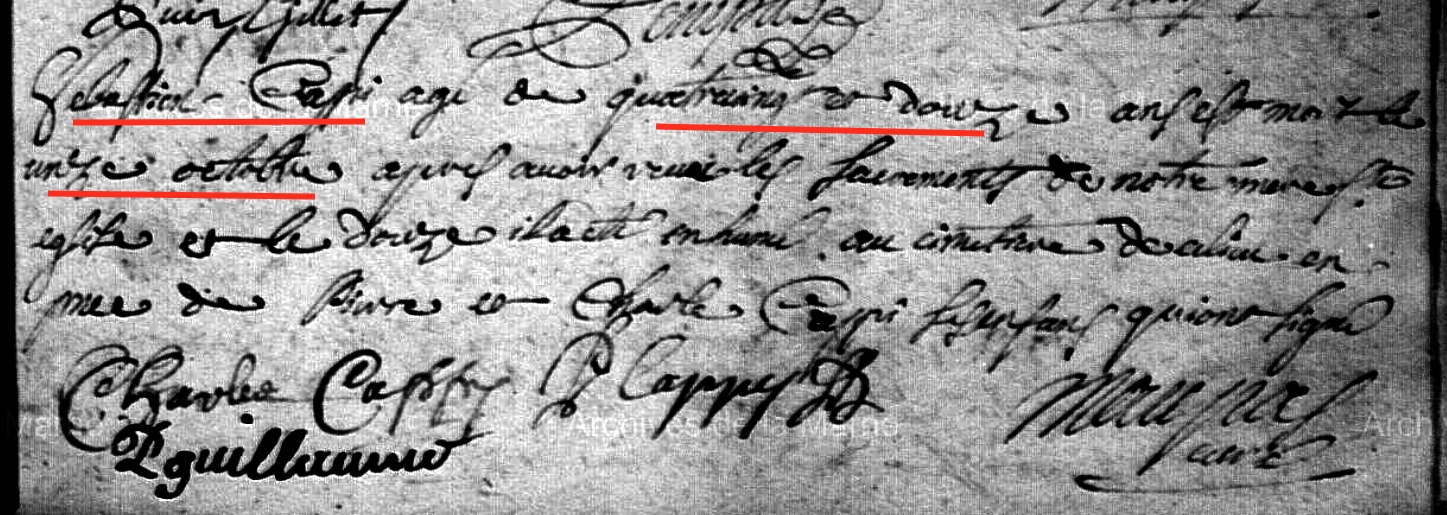 Gillet
Sebastien Cappi agé de quatrevingt et douze ans est mort le
unze octobre apres avoir receu les sacrements de notre mere ste
eglise et le douze il a eté enhumé au cimetiere en
de Pierre et Charle Cappi ses enfans qui ont signé
Charles Cappy P Cappy
Pguillaume
curé
Archives de la Marne